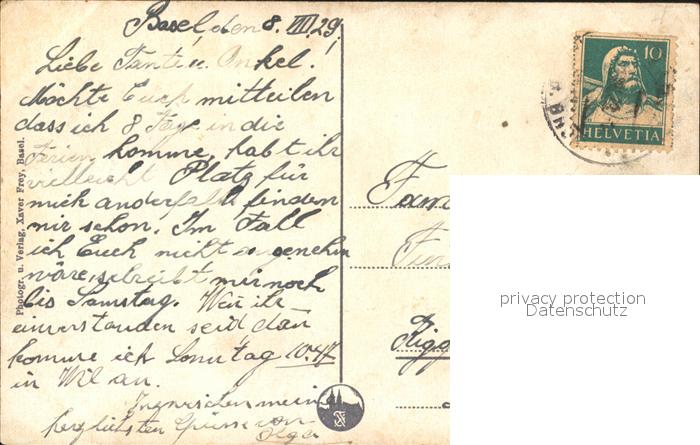 Basel, den 8. VIII. 29.
Liebe Tante u. Onkel!
Möchte Euch mitteilen
dass ich 8 Tage in die
Ferien komme, habt ihr
vielleicht Platz für
mich anderfalls finden
wir schon. Im Fall
ich Euch nicht angenehm
wäre, schreibt mir noch
bis Samstag. Wen ihr
einverstanden seid dan
komme ich Sonntag 10.47
in Wil an.
Inzwischen mein
herzlichsten Grüsse von
Olga
Photogr. u. Verlag, Xaver Frey, Basel.
10
HELVETIA
Fam
privacy protection
Datenschutz